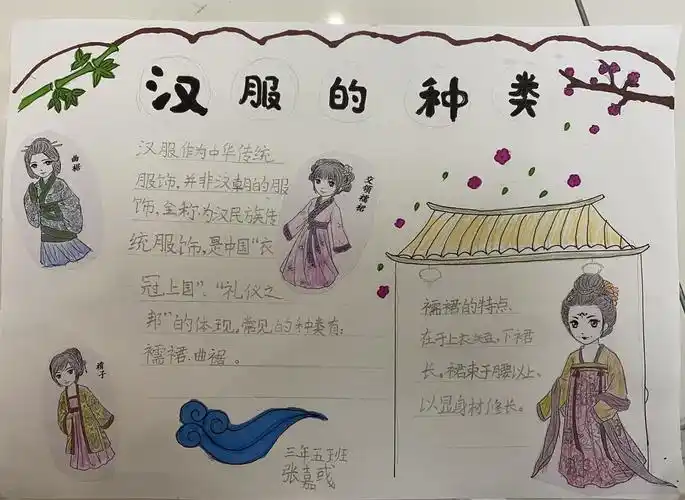 汉服的种类
曲裾
汉服作为中华传统
服饰,并非汉朝的服
饰,全称为汉民族传
统服饰,是中国“衣
冠上国”、“礼仪之
邦”的体现,常见的种类有:
襦裙、曲裾。
交领襦裙
褙子
襦裙的特点、
在于上衣短,下裙
长,裙束于腰以上、
以显身材修长。
三年五班
张嘉彧